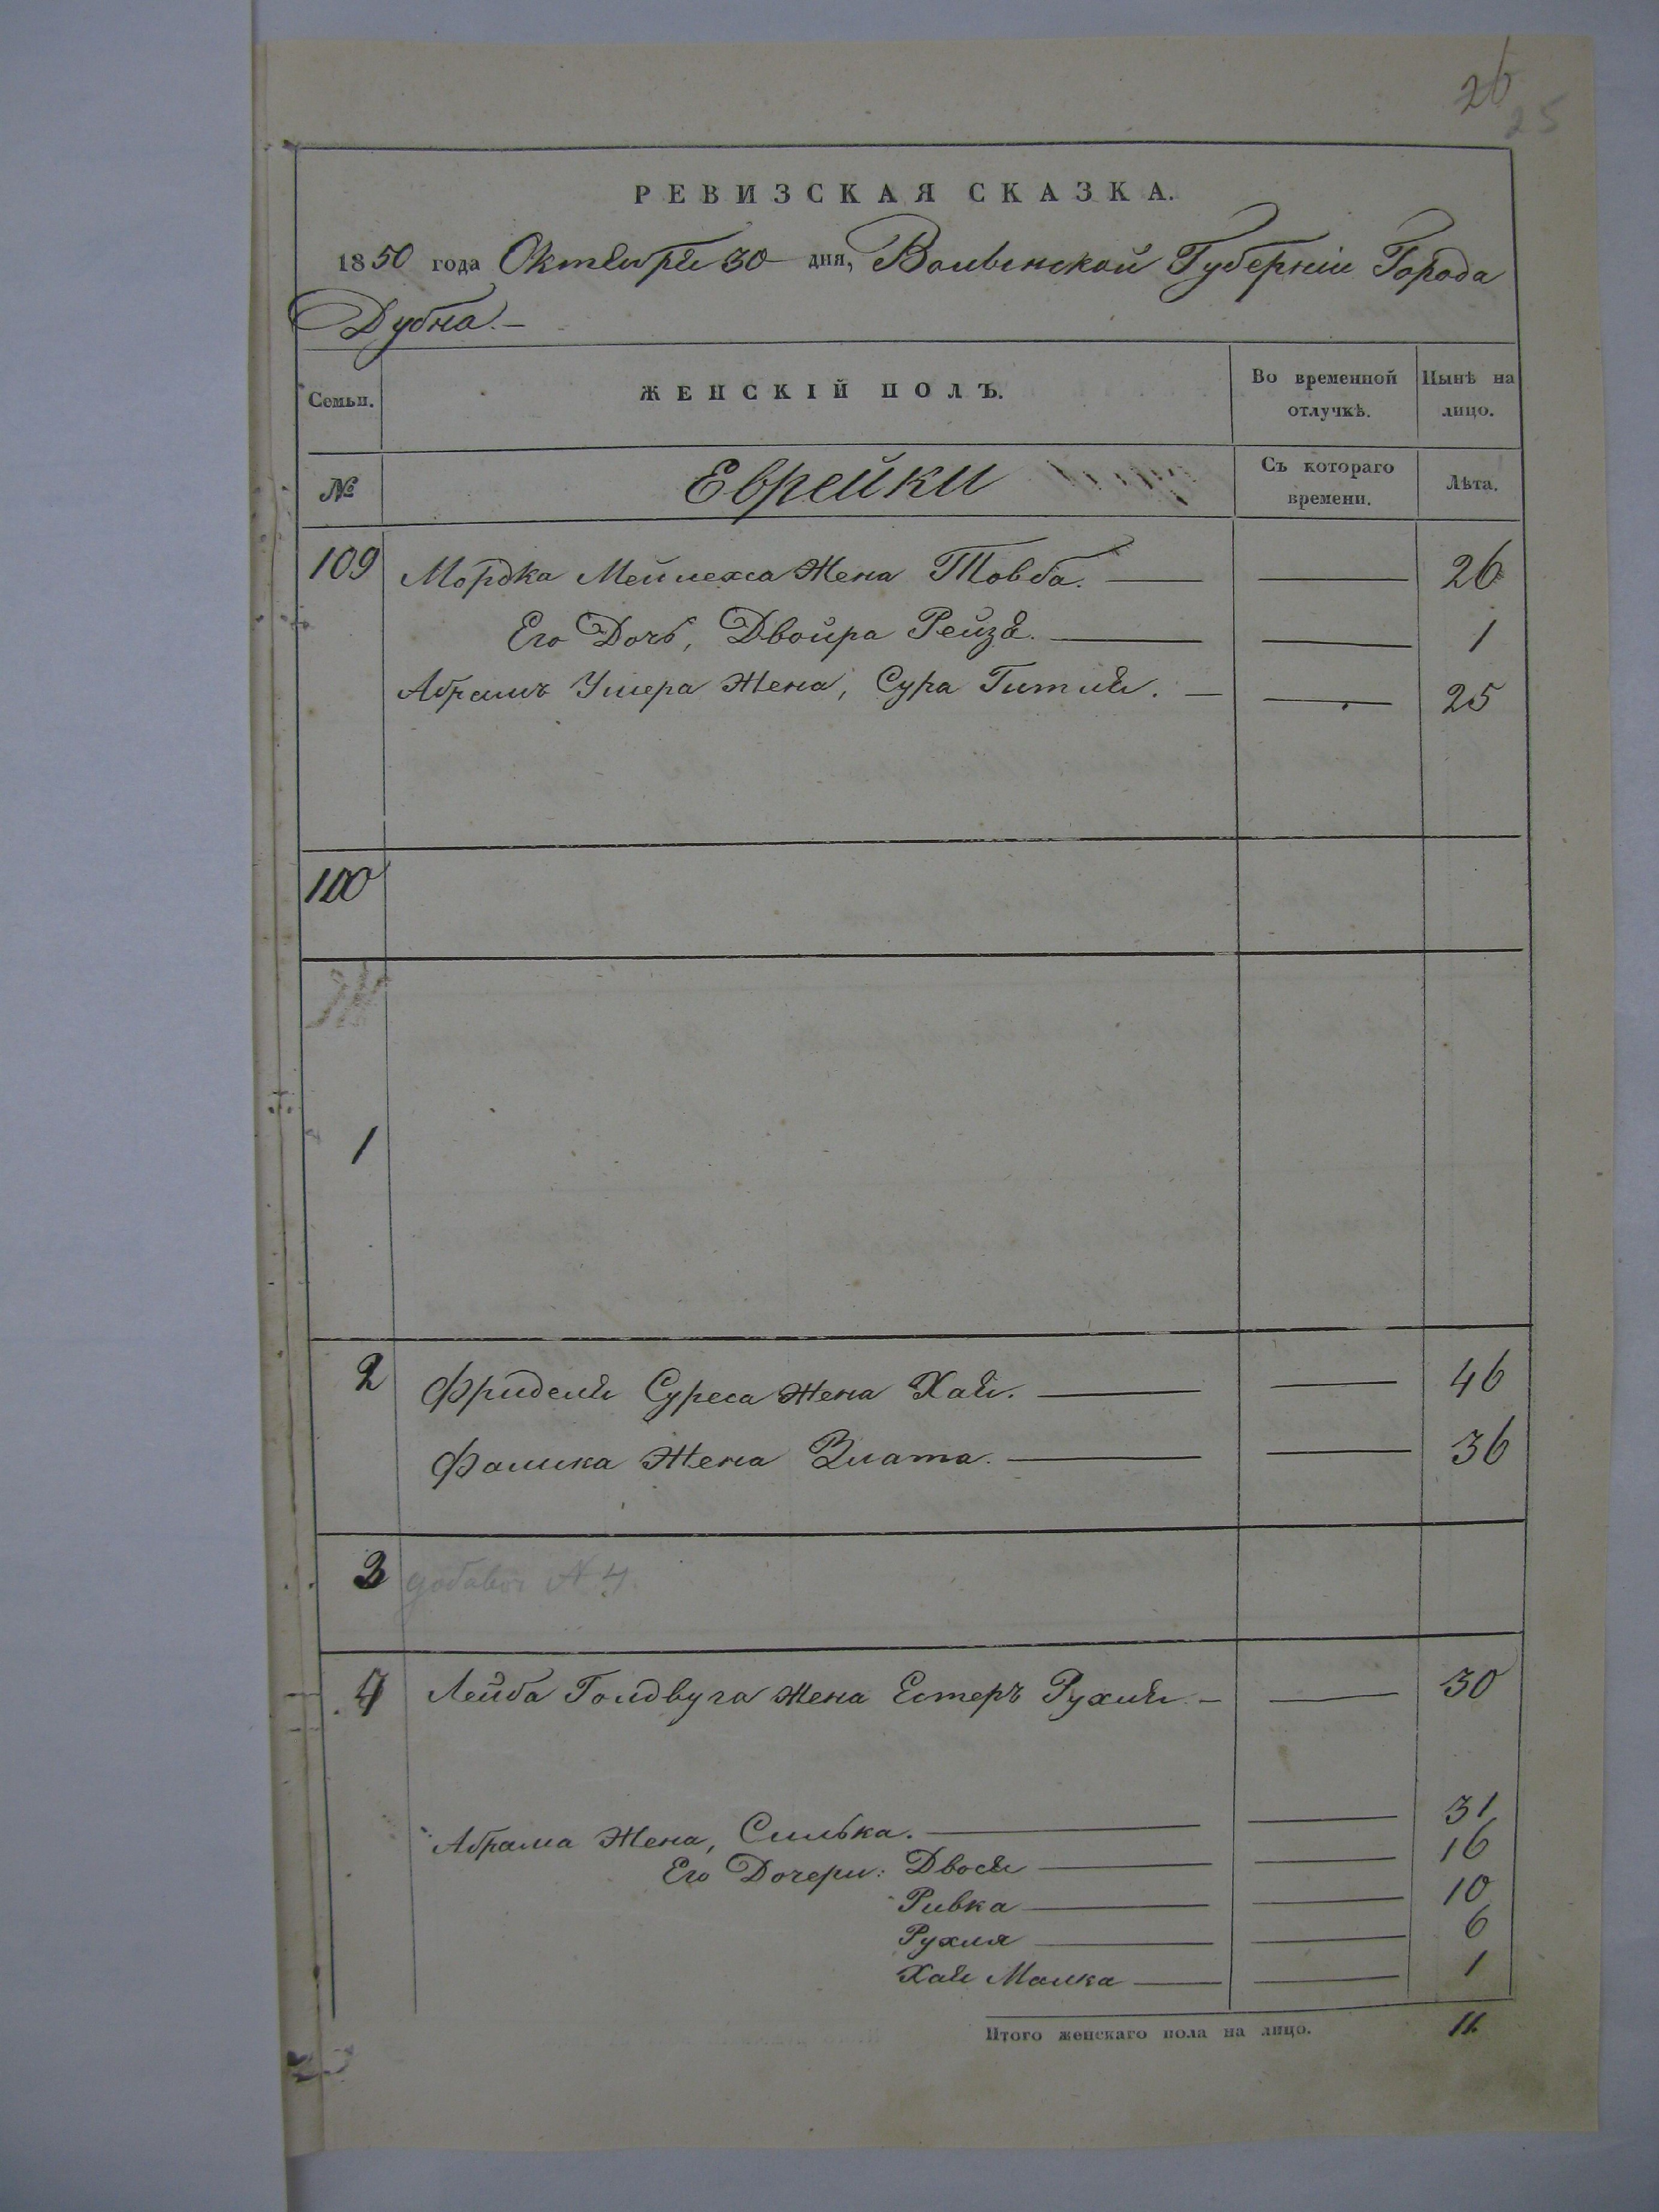 26
25
РЕВИЗСКАЯ СКАЗКА.
1850 года Октября 30 дня, Волынской Губерніи Города
Дубна.—
Семьи. ЖЕНСКІЙ ПОЛЪ. Во временной отлучкѣ. Нынѣ на лицо.
№ Еврейки Съ котораго времени. Лѣта.
109 Мордка Мейлехса Жена Товба. — — 26
Его Дочь, Двойра Рейзя. — — 1
Абрамъ Ушера Жена, Сура Гитля. — — 25
100
1
2 Фриделя Суреса Жена Хая. — — 46
Фалика Жена Злата. — — 36
3 добавоч N 4.
4 Лейба Голдвуга Жена Естеръ Рухля — — 30
Абрама Жена, Силька. — — 31
Его Дочери: Двося — — 16
Ривка — — 10
Рухля — — 6
Хая Малка — — 1
Итого женскаго пола на лицо. 11.